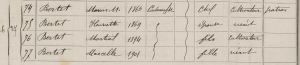 74 Bertet 1866 Chef cultivateur patron
75 Bertet Henriette 1869 épouse néant
76 Bertet Martial 1894 fils cultivateur
77 Bertet Marcelle 1901 fille néant